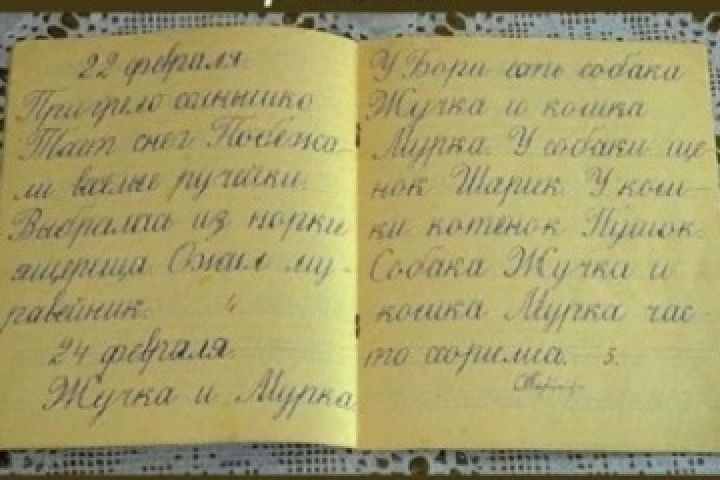 22 февраля
Пригрело солнышко
Тает снег Побежа-
ли весёлые ручейки.
Выбралась из норки
ящерица. Ожил му-
равейник. 4
24 февраля
Жучка и Мурка
У Бори есть собака
Жучка и кошка
Мурка. У собаки ще
нок Шарик. У кош-
ки котёнок Пушок.
Собака Жучка и
кошка Мурка час-
то ссорились. 5.